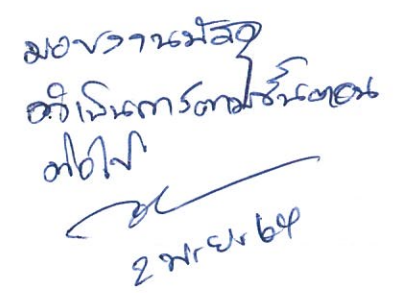 มอบงานพัสดุ
ดำเนินการตามขั้นตอน
ต่อไป
2 เมษายน 64